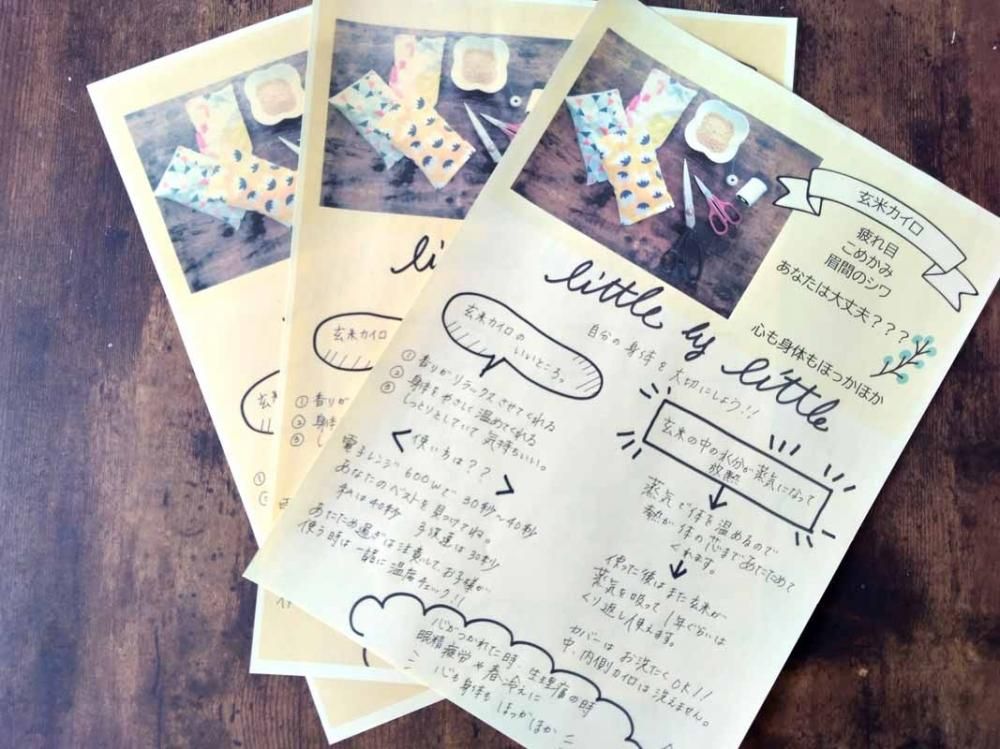 玄米カイロ
疲れ目
こめかみ
眉間のシワ
あなたは大丈夫???
心も身体もほっかほか
little by little
自分の身体を大切にしよう!!
玄米カイロの
いいところっ
① 香りがリラックスさせてくれる
② 身体をやさしく温めてくれる
③ しっとりとしていて気持ちいい。
<使い方は??>
電子レンジ600Wで30秒~40秒
あなたのベストを見つけてね。
私は40秒 子供達は30秒
あたため過ぎは注意して、お子様が
使う時は一緒に温度チェック!!
玄米の中の水分が蒸気になって
放熱
蒸気で体を温めるので
熱が体の芯まであたためて
くれます。
使った後はまた玄米が
蒸気を吸って1年ぐらいは
くり返し使えます。
カバーはお洗たくOK!!
中、内側カイロは洗えません。
心がつかれた時、生理痛の時
眼精疲労や
心も身体も ほっかほか
li
玄米カイロ
① 香りが
② 身体
③ し
玄
①